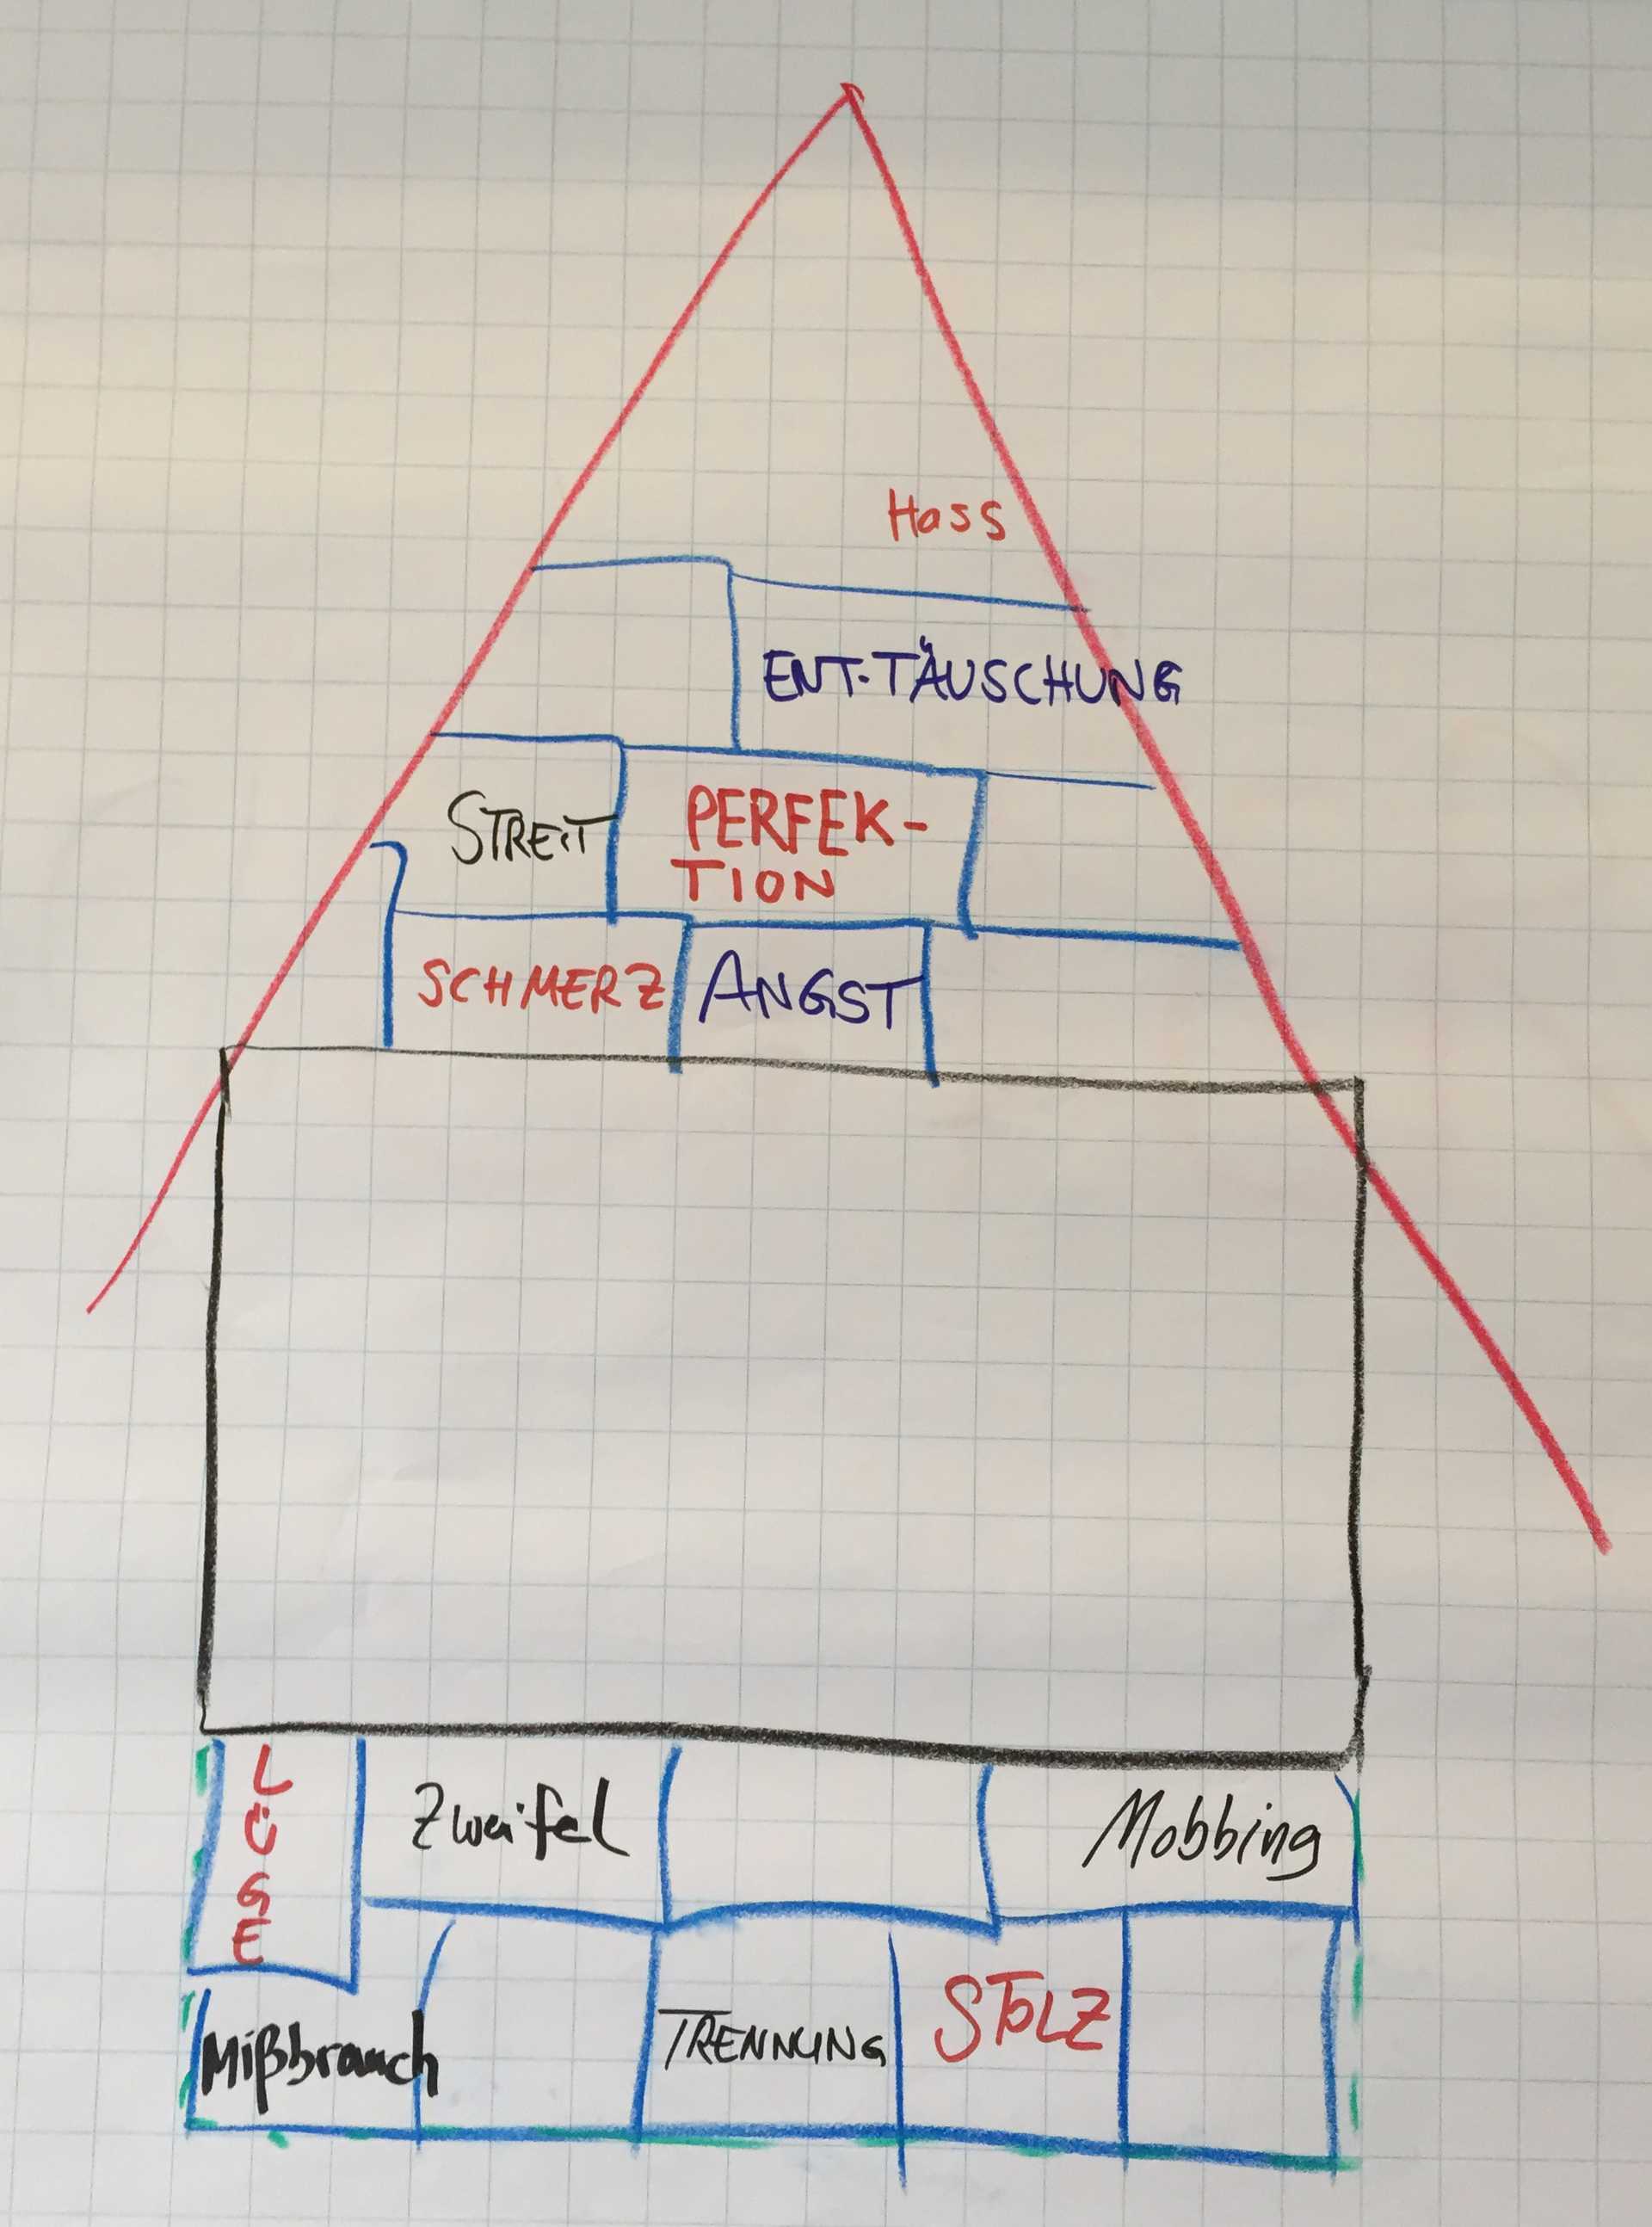 Hass
ENT-TÄUSCHUNG
STREIT
PERFEK-
TION
SCHMERZ
ANGST
LÜGE
Zweifel
Mobbing
Mißbrauch
TRENNUNG
STOLZ